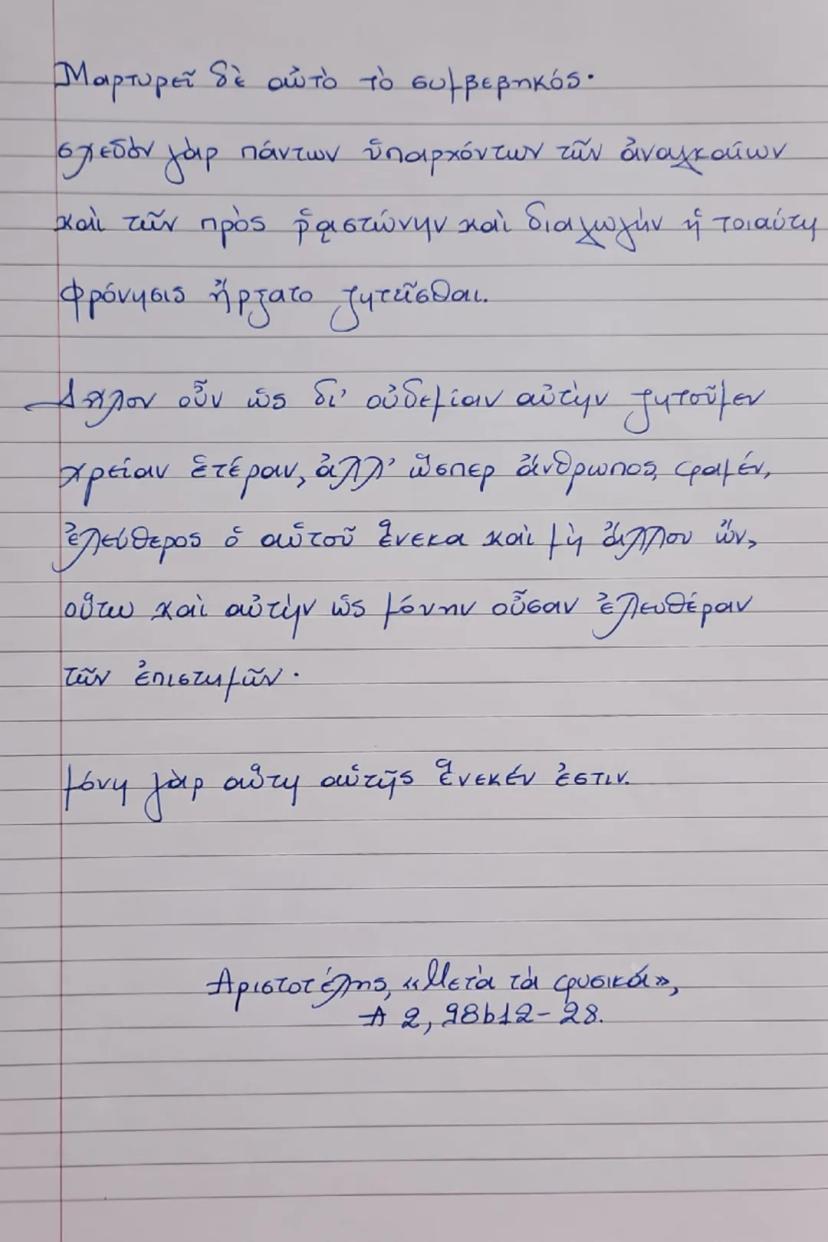 Μαρτυρεῖ δὲ αὐτὸ τὸ συμβεβηκός·
σχεδὸν γὰρ πάντων ὑπαρχόντων τῶν ἀναγκαίων
καὶ τῶν πρὸς ῥᾳστώνην καὶ διαγωγὴν ἡ τοιαύτη
φρόνησις ἤρξατο ζητεῖσθαι.
Δῆλον οὖν ὡς δι' οὐδεμίαν αὐτὴν ζητοῦμεν
χρείαν ἑτέραν, ἀλλ' ὥσπερ ἄνθρωπος, φαμέν,
ἐλεύθερος ὁ αὑτοῦ ἕνεκα καὶ μὴ ἄλλου ὤν,
οὕτω καὶ αὐτὴν ὡς μόνην οὖσαν ἐλευθέραν
τῶν ἐπιστημῶν·
μόνη γὰρ αὕτη αὑτῆς ἕνεκέν ἐστιν.
Αριστοτέλης, «Μετὰ τὰ φυσικά»,
Α 2, 98b12-28.